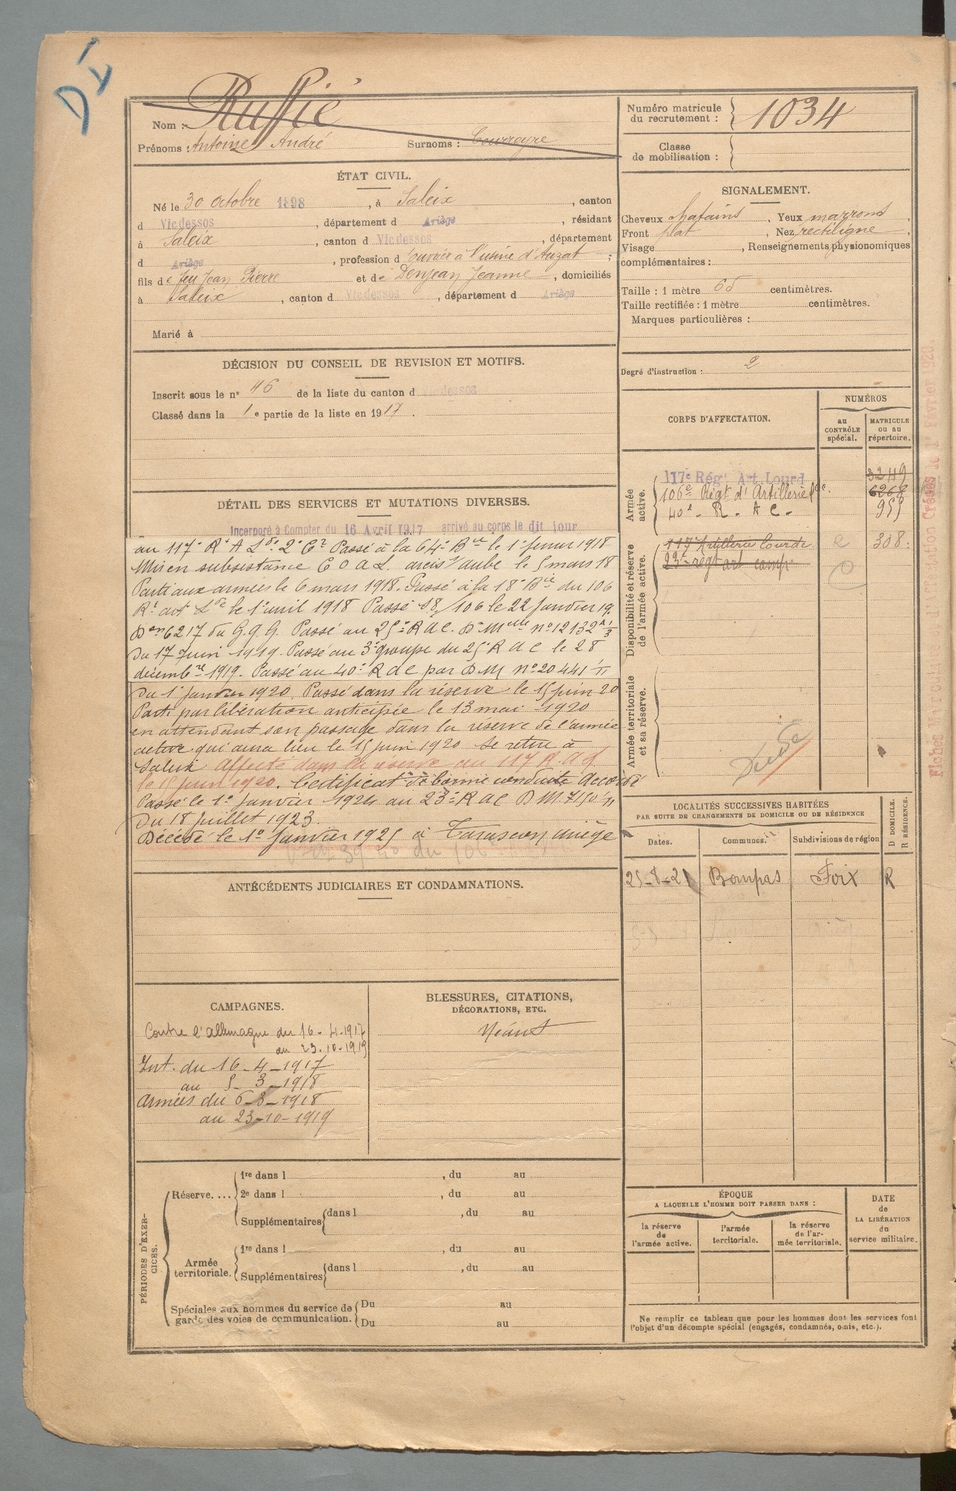 DI
Nom : Ruffié
Prénoms : Antoine André Surnoms :
Numéro matricule
du recrutement : 1034
Classe
de mobilisation :
ÉTAT CIVIL.
Né le 30 octobre 1898, à Saleix, canton
d Vicdessos, département d Ariège, résidant
à Saleix, canton d Vicdessos, département
d Ariège, profession d ouvrier à l'usine d'Auzat ;
fils de feu Jean Pierre et de Denjean Jeanne, domiciliés
à Saleix, canton d Vicdessos, département d Ariège
Marié à
SIGNALEMENT.
Cheveux chatains. Yeux marrons.
Front plat. Nez rectiligne.
Visage , Renseignements physionomiques
complémentaires :
Taille : 1 mètre 65 centimètres.
Taille rectifiée : 1 mètre centimètres.
Marques particulières :
Degré d'instruction : 2
DÉCISION DU CONSEIL DE REVISION ET MOTIFS.
Inscrit sous le n° 46 de la liste du canton d Vicdessos
Classé dans la 1e partie de la liste en 1917.
DÉTAIL DES SERVICES ET MUTATIONS DIVERSES.
Incorporé à Compter du 16 Avril 1917 arrivé au corps le dit jour
au 117e R A Lde 2e Ct Passé à la 64e Bie le 1er février 1918
Mis en subsistance C O A L arcis s/ aube le 5 mars 18
Parti aux armées le 6 mars 1918. Passé à la 18e Bie du 106
Rt art Lde le 1er avril 1918 Passé 58/106 le 22 Janvier 19
du G.Q.G. Passé au 25e R a C. Don Melle n° 12132
Du 17 Juin 1919. Passé au 3e groupe du 25e R a C le 28
décembre 1919. Passé au 40e R a C par D.M n° 20441
Du 1er janvier 1920, Passé dans la réserve le 15 juin 20
Parti par libération anticipée le 13 mai 1920
en attendant son passage dans la réserve de l'armée
active qui aura lieu le 15 juin 1920 Se retire à
Saleix Affecté dans la réserve au 117 R.a.L
le 15 juin 1920. Certificat de bonne conduite Accordé
Passé le 1er Janvier 1924 au 23e R a C D.M. 7150
Du 18 juillet 1923.
Décédé le 1er Janvier 1925 à Tarascon ariège
CORPS D'AFFECTATION.
NUMÉROS
au
CONTRÔLE
spécial.
MATRICULE
ou au
répertoire.
Armée
active.
117e Rég. Art. Lourd 3249
106e Régt d'Artillerie Lde 6268
40e R. A C. 953
Disponibilité et réserve
de l'armée active.
117 Artillerie Lourde 308
23e regt art camp
Armée territoriale
et sa réserve.
Fiches Matricules
LOCALITÉS SUCCESSIVES HABITÉES
PAR SUITE DE CHANGEMENTS DE DOMICILE OU DE RÉSIDENCE
D DOMICILE.
R RÉSIDENCE.
Dates. Communes. Subdivisions de région
25-8-21 Bompas Foix R
ANTÉCÉDENTS JUDICIAIRES ET CONDAMNATIONS.
CAMPAGNES.
Contre l'allemagne du 16-4-1917
au 23-10-1919
Int. du 16-4-1917
au 5-3-1918
Armées du 6-3-1918
au 23-10-1919
BLESSURES, CITATIONS,
DÉCORATIONS, ETC.
Néant
PÉRIODES D'EXER-
CICES.
Réserve.... 1re dans l , du au
2e dans l , du au
Supplémentaires dans l , du au
Armée
territoriale. 1re dans l , du au
Supplémentaires dans l , du au
Spéciales aux hommes du service de
garde des voies de communication. Du au
Du au
ÉPOQUE
A LAQUELLE L'HOMME DOIT PASSER DANS :
la réserve
de
l'armée active.
l'armée
territoriale.
la réserve
de l'ar-
mée territoriale.
DATE
de
LA LIBÉRATION
du
service militaire.
Ne remplir ce tableau que pour les hommes dont les services font
l'objet d'un décompte spécial (engagés, condamnés, omis, etc.).